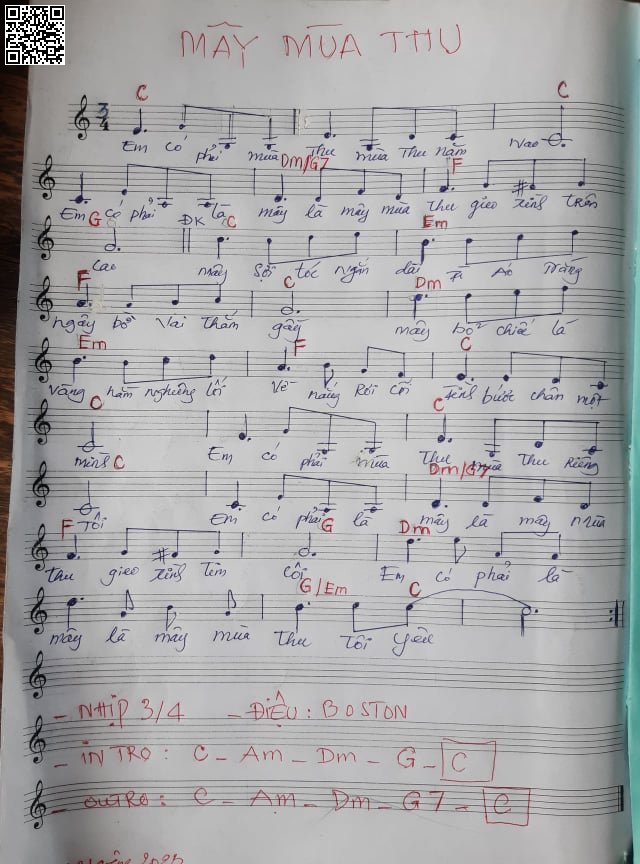 MÂY MÙA THU
C C
3/4
Em có phải mùa Thu mùa Thu năm nao
Dm/G7 F
Em có phải là mây là mây mùa thu gieo xinh trên
G ĐK C Em
cao mây sợi tóc ngắn dài Tà Áo Trắng
F C Dm
ngây bởi Vai Thắm gầy mây bỏ chiếc lá
Em F C
Vàng nằm nghiêng lối Về nắng Rơi cõi Tình bước chân một
C C
mình Em có phải mùa Thu mùa Thu Riêng
C Dm/G7
Tôi Em có phải là mây là mây mùa
F G Dm
thu gieo xinh Tìm Côi Em có phải là
G/Em C
mây là mây mùa thu Tôi yêu
- NHỊP 3/4 - ĐIỆU: BOSTON
- INTRO: C - Am - Dm - G - C
- OUTRO: C - Am - Dm - G7 - C